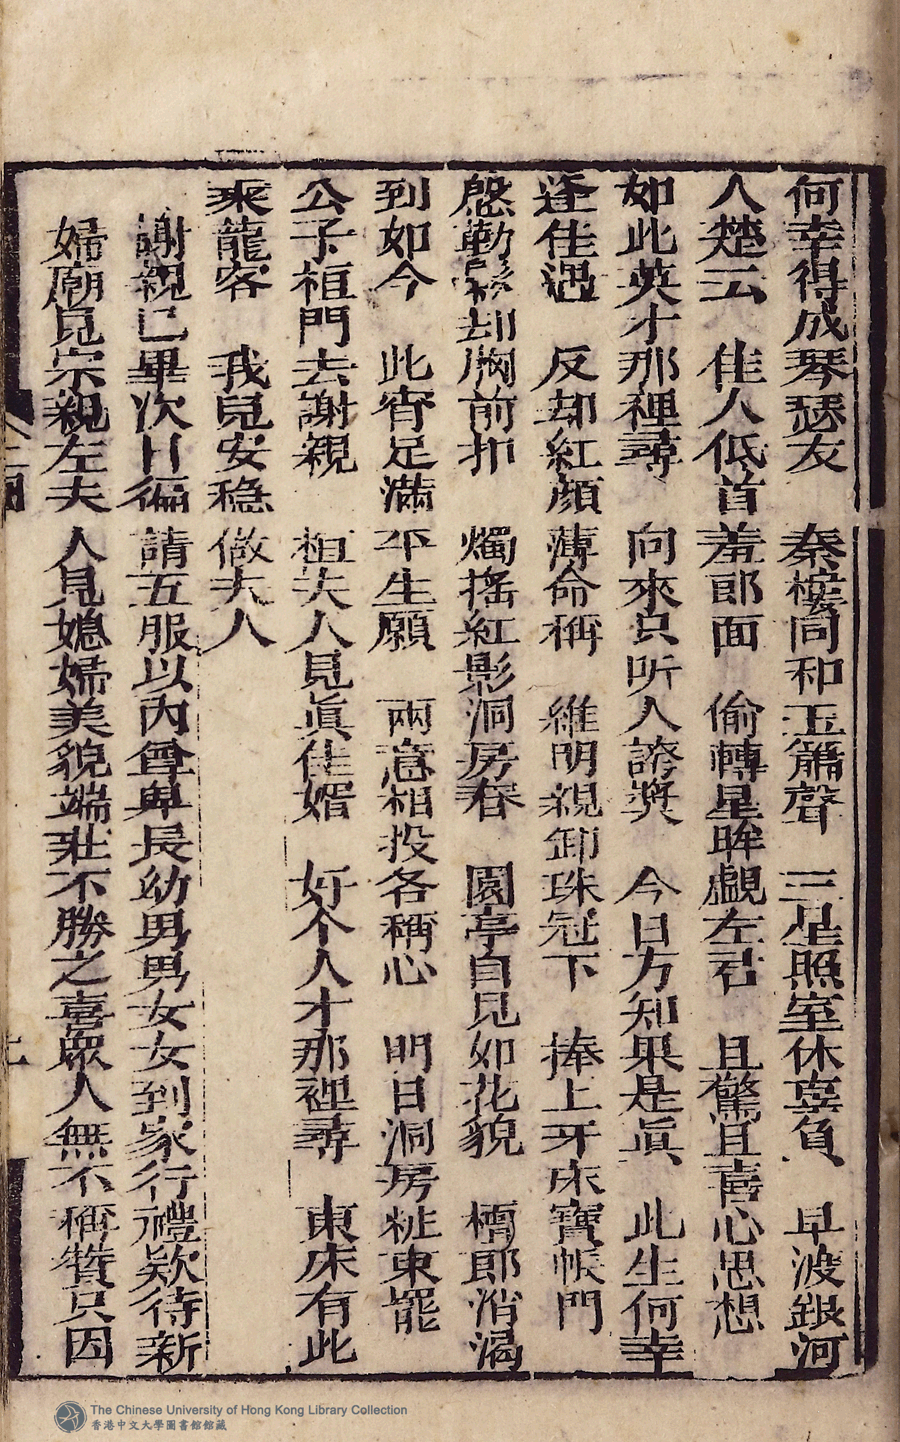 何幸得成琴瑟友　秦樓同和玉簫聲　三星照室休辜負　早渡銀河
人楚云　佳人低首羞郎面　偷轉星眸覷左君　且驚且喜心思想
如此英才那裡尋　向來只听人誇奬　今日方知果是眞　此生何幸
逢佳遇　反却紅顔薄命稱　維明親卸珠冠下　捧上牙床寶帳門
慇勤 却胸前扣　燭搖紅影洞房春　園亭自見如花貌　檀郎消渴
到如今　此宵足滿平生願　兩意相投各稱心　明日洞房粧束罷
公子桓門去謝親　桓夫人見眞佳婿　好个人才那裡尋　東床有此
乘龍客　我兒安穩做夫人
謝親已畢次日徧請五服以內尊卑長幼男男女女到家行禮欵待新
婦廟見宗親左夫人見媳婦美貌端莊不勝之喜衆人無不稱贊只因
The Chinese University of Hong Kong Library Collection
香港中文大學圖書館館藏